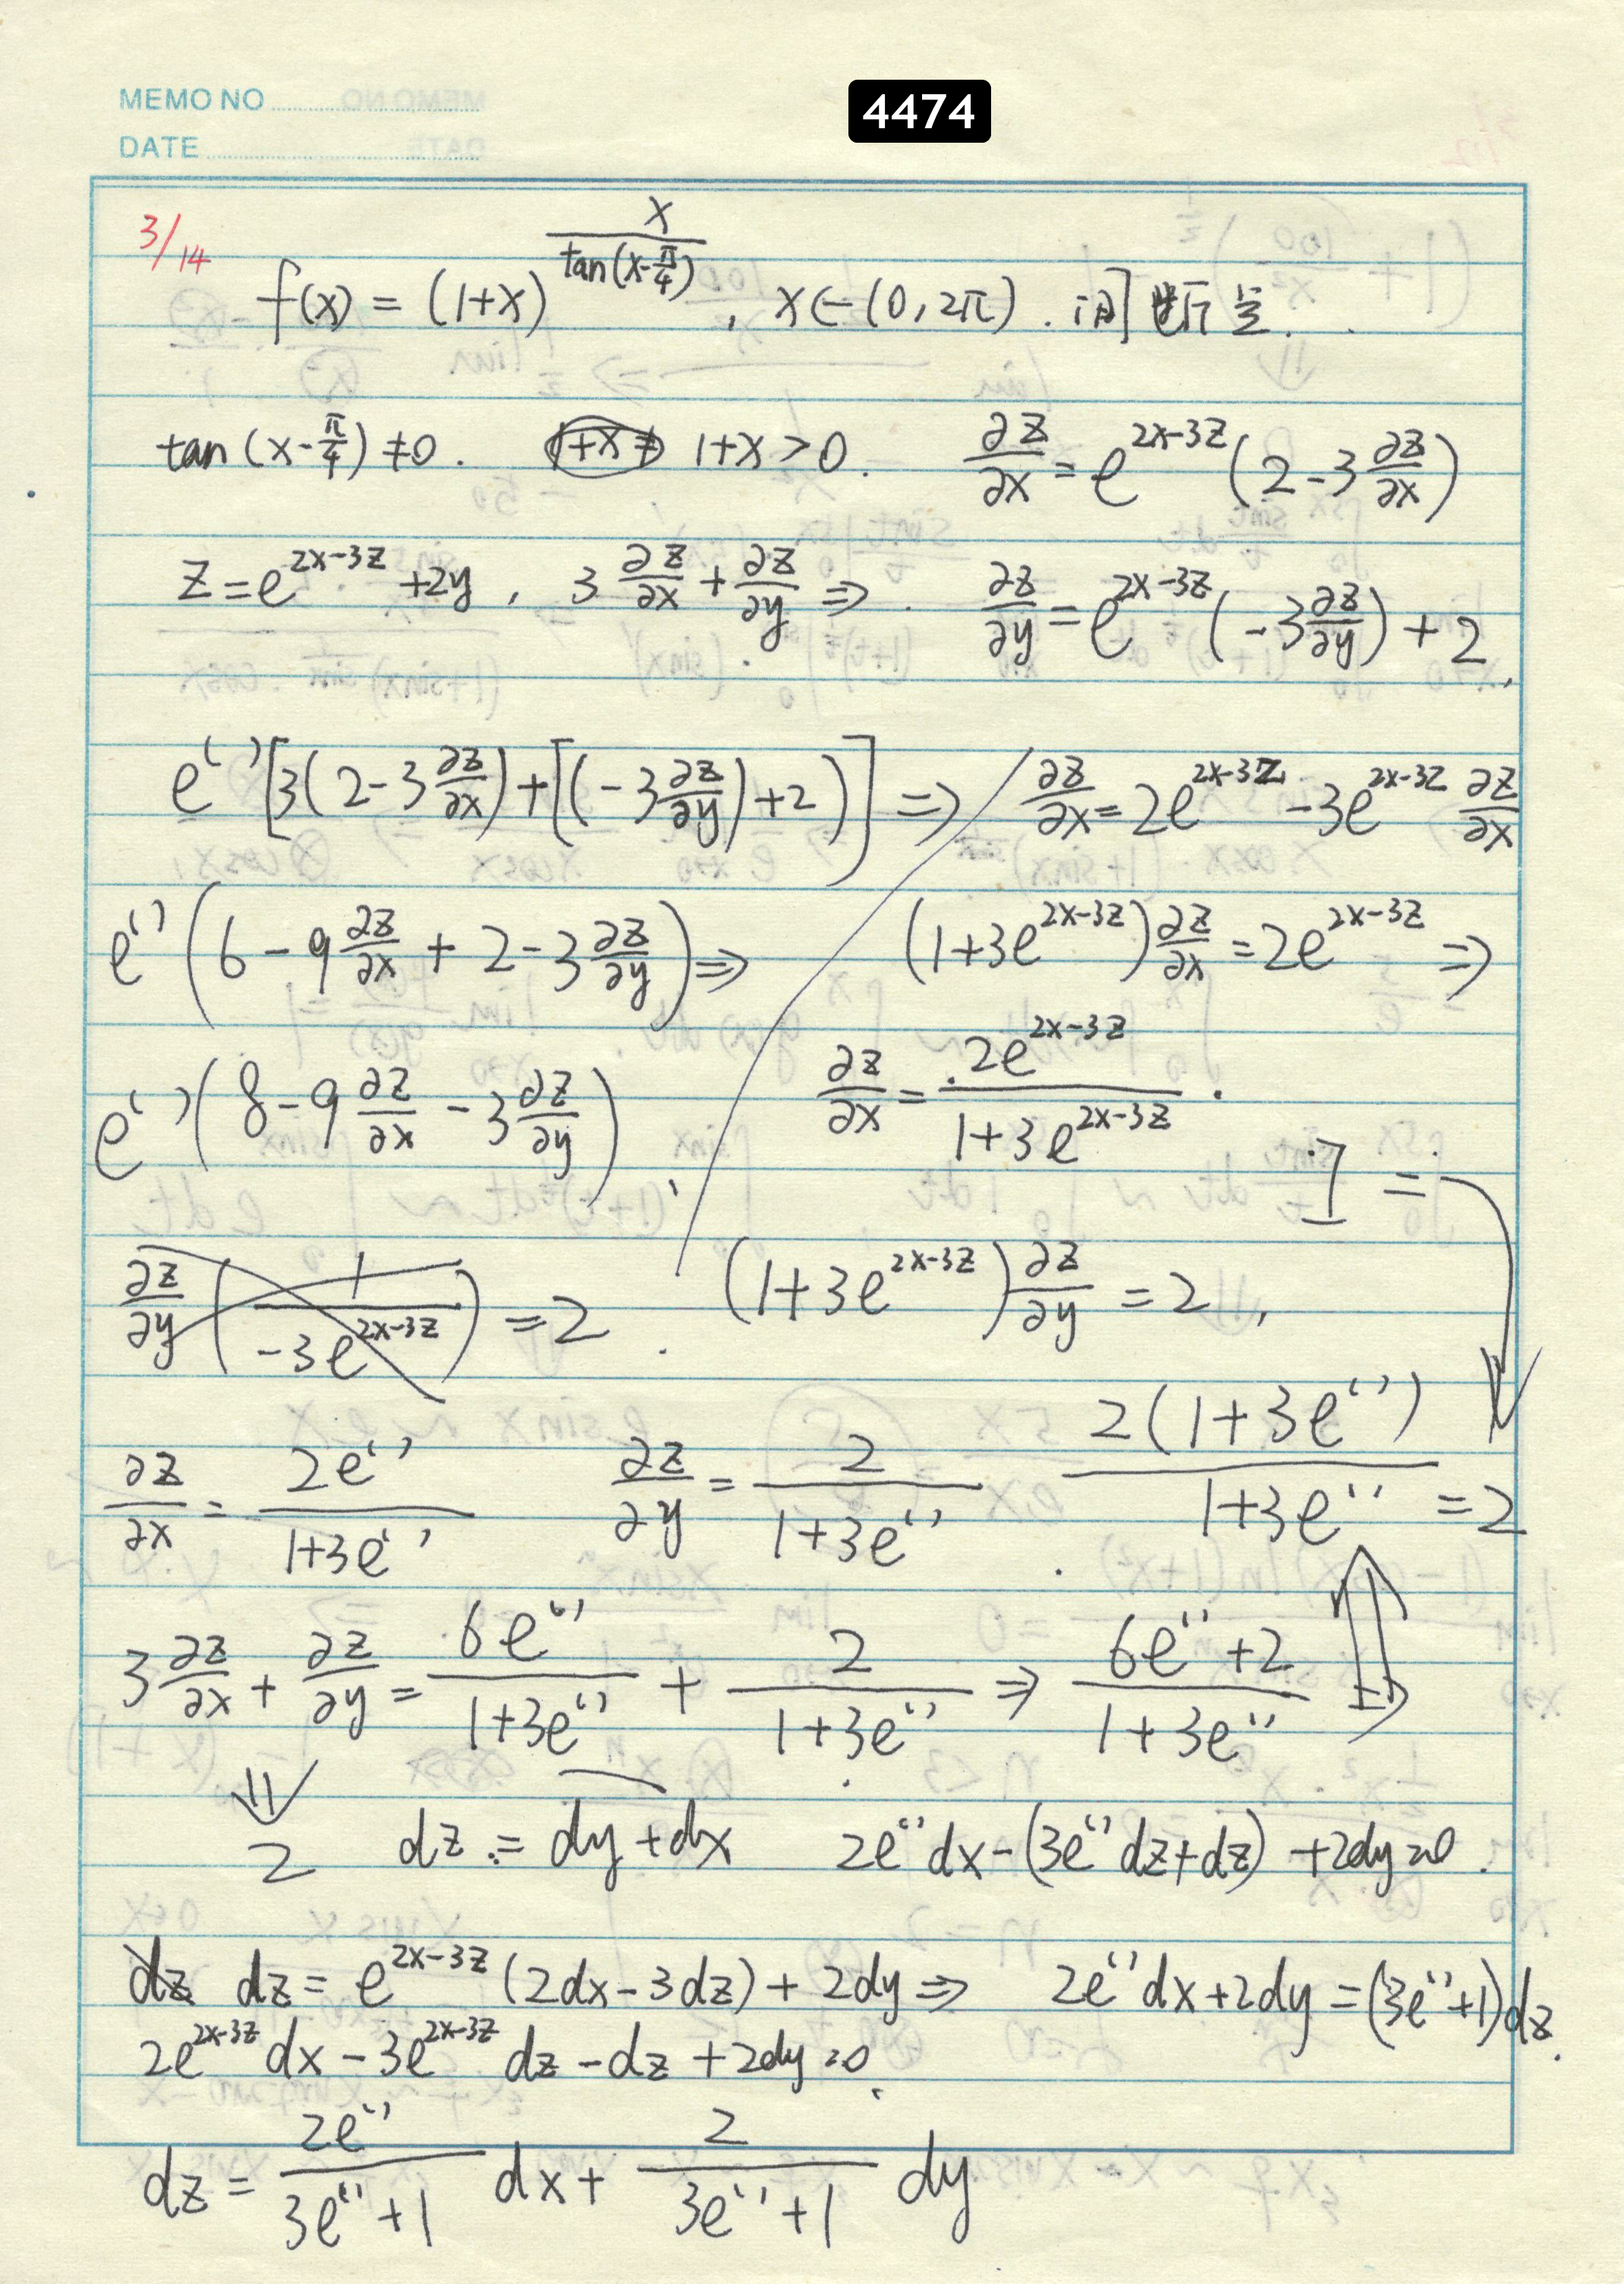 MEMO NO
4474
DATE
3/14
f(x) = (1+x)^{\frac{x}{tan(x-\frac{π}{4})}}, x∈(0, 2π). 间断点.
tan(x-\frac{π}{4}) ≠0. 1+x≠ 1+x>0. \frac{∂z}{∂x} = e^{2x-3z}(2-3\frac{∂z}{∂x})
z=e^{2x-3z}+2y, 3\frac{∂z}{∂x}+\frac{∂z}{∂y} ⇒. \frac{∂z}{∂y} = e^{2x-3z}(-3\frac{∂z}{∂y})+2
e^{( )}[3(2-3\frac{∂z}{∂x})+[(-3\frac{∂z}{∂y})+2)] ⇒ \frac{∂z}{∂x}=2e^{2x-3z}-3e^{2x-3z}\frac{∂z}{∂x}
e^{( )}(6-9\frac{∂z}{∂x}+2-3\frac{∂z}{∂y}) ⇒ (1+3e^{2x-3z})\frac{∂z}{∂x}=2e^{2x-3z} ⇒
e^{( )}(8-9\frac{∂z}{∂x}-3\frac{∂z}{∂y}) \frac{∂z}{∂x}=\frac{2e^{2x-3z}}{1+3e^{2x-3z}}.
\frac{∂z}{∂y}(\frac{1}{-3e^{2x-3z}})=2. (1+3e^{2x-3z})\frac{∂z}{∂y}=2,
\frac{∂z}{∂x}=\frac{2e^{( )}}{1+3e^{( )}} \frac{∂z}{∂y}=\frac{2}{1+3e^{( )}} \frac{2(1+3e^{( )})}{1+3e^{( )}}=2
3\frac{∂z}{∂x}+\frac{∂z}{∂y}=\frac{6e^{( )}}{1+3e^{( )}}+\frac{2}{1+3e^{( )}} ⇒ \frac{6e^{( )}+2}{1+3e^{( )}} ⇒
⇓
2 dz = dy+dx 2e^{( )}dx-(3e^{( )}dz+dz)+2dy=0.
dz dz = e^{2x-3z}(2dx-3dz)+2dy ⇒ 2e^{( )}dx+2dy=(3e^{( )}+1)dz.
2e^{2x-3z}dx-3e^{2x-3z}dz-dz+2dy=0.
dz=\frac{2e^{( )}}{3e^{( )}+1}dx+\frac{2}{3e^{( )}+1}dy